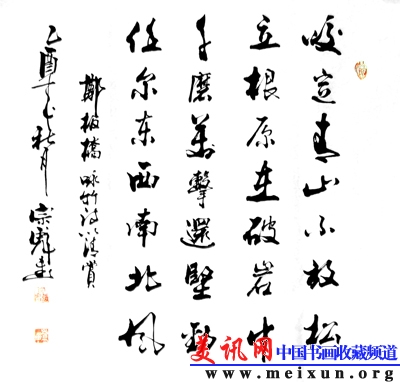 咬定青山不放松
立根原在破岩中
千磨萬擊還堅勁
任尔东西南北风
鄭板橋咏竹诗以清赏
乙酉之秋月
美讯网 中国书画收藏频道
www.meixun.org